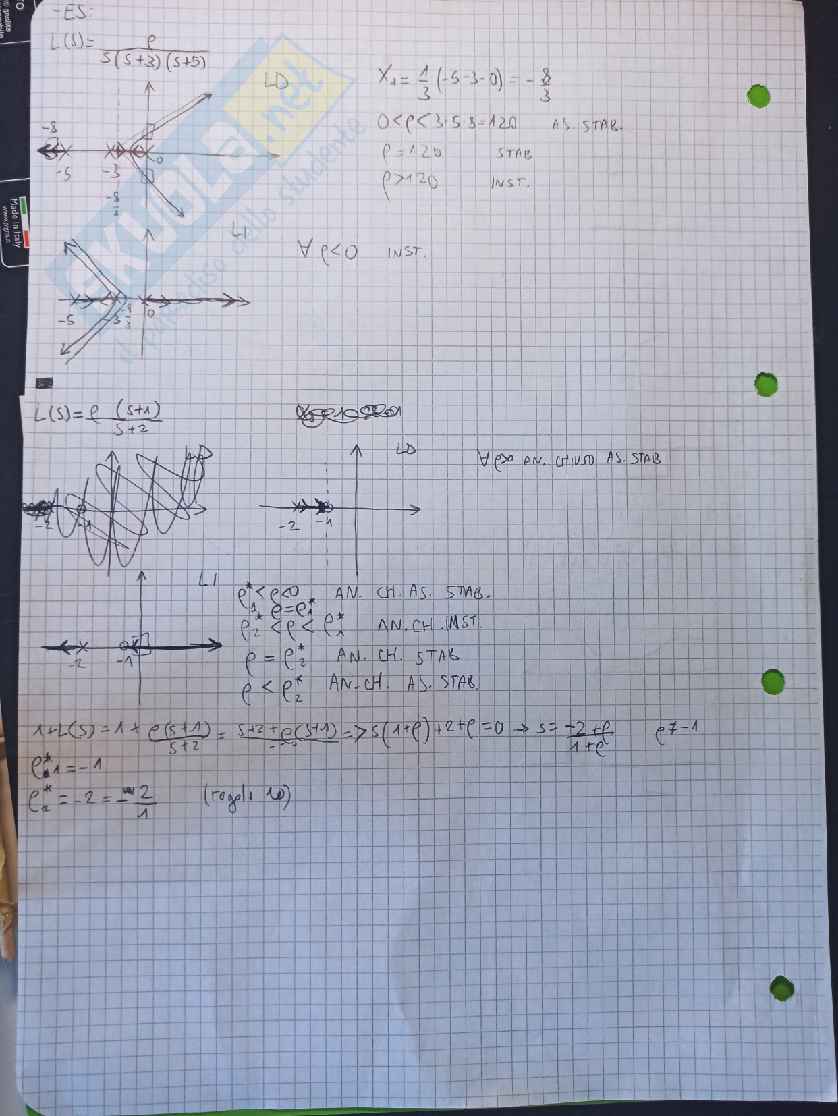 -ES:
L(S)= ρ / S(S+3)(S+5)
LD
X₁= 1/3 (-5-3-0) = -8/3
0<ρ<3·5·8=120 AS. STAB.
ρ=120 STAB
ρ>120 INST.
-5 -3 0
-8/3
LI
∀ρ<0 INST.
-5 -3 -8/3 0
SKUOLA.net
Made in Italy
L(S)= ρ (S+1) / S+2
LD
∀ρ>0 AN. CHIUSO AS. STAB
-2 -1
-2 -1
LI
ρ*₁<ρ<0 AN. CH. AS. STAB.
ρ=ρ*₁
ρ*₂<ρ<ρ*₁ AN. CH. INST.
ρ=ρ*₂ AN. CH. STAB
ρ<ρ*₂ AN. CH. AS. STAB.
-2 -1
1+L(S)=1+ ρ(S+1) / S+2 = S+2+ρ(S+1) => S(1+ρ)+2+ρ=0 → S= -2+ρ / 1+ρ ρ≠-1
ρ*₁=-1
ρ*₂=-2=-2/1 (regola 10)